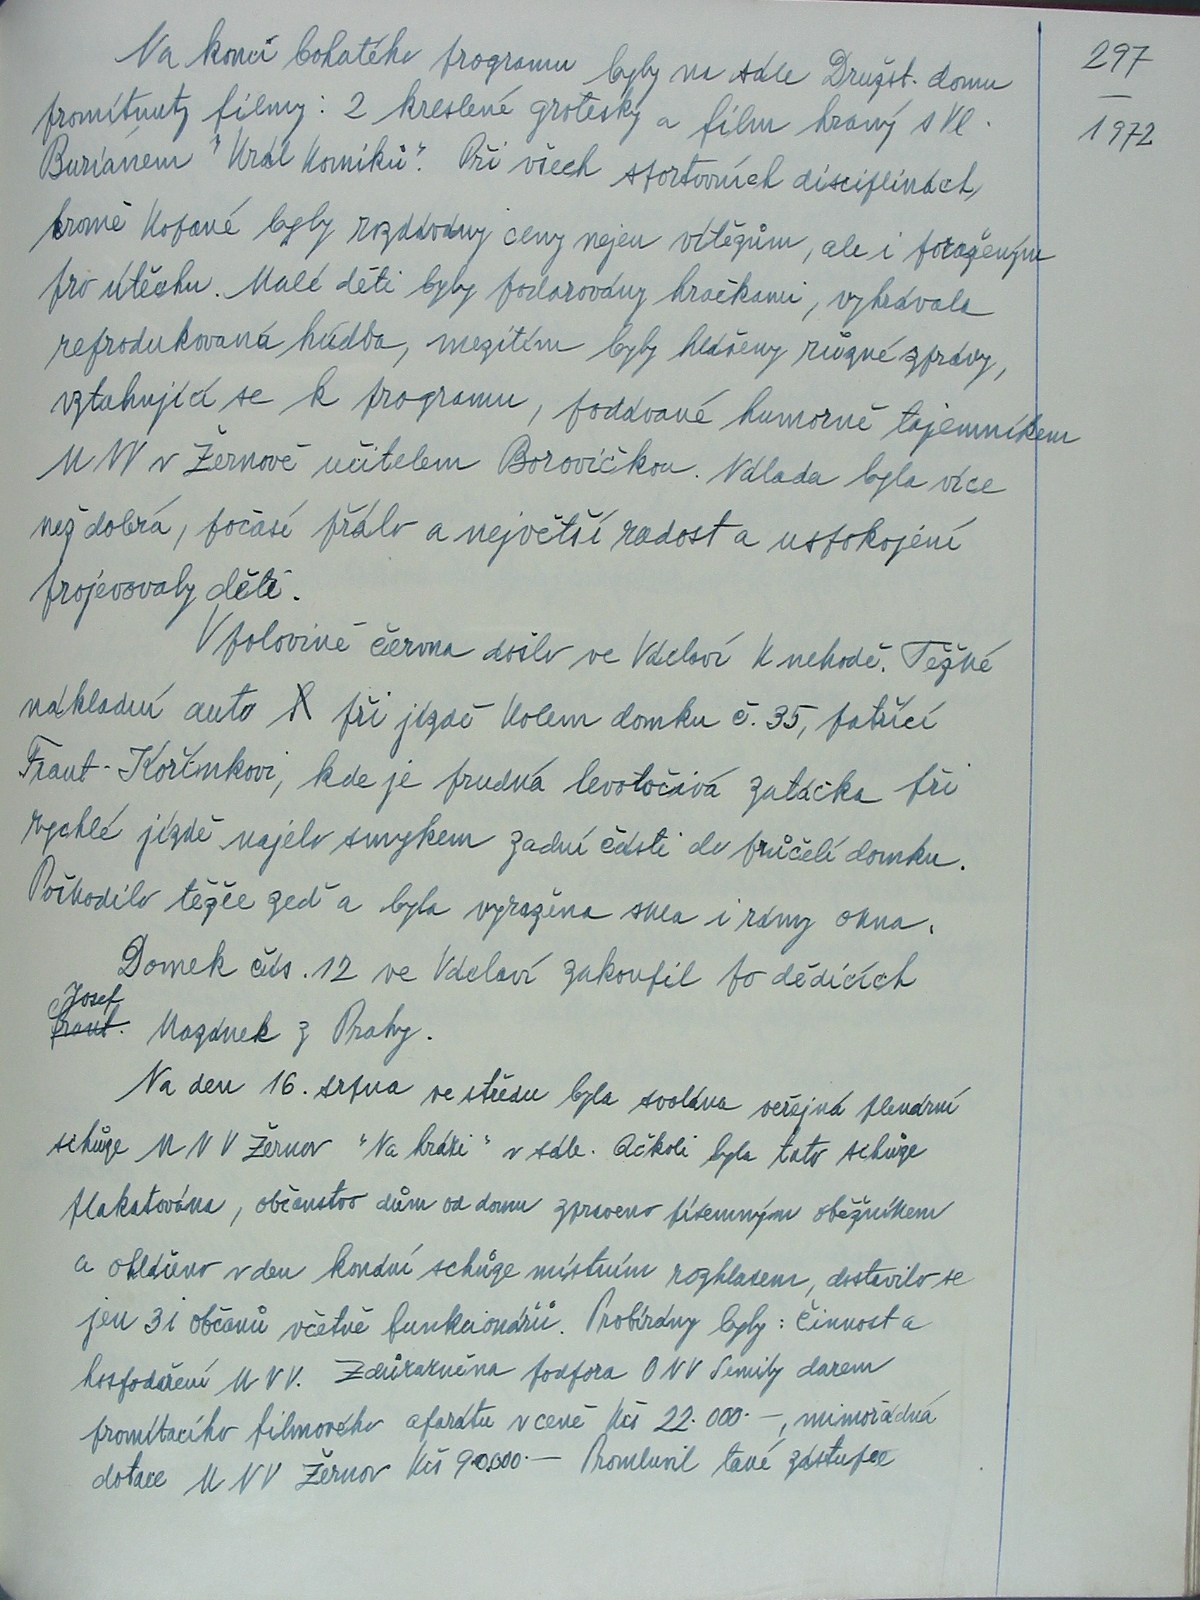 297
—
1972
Na konci bohatého programu byly na sále Družst. domu
promítnuty filmy: 2 kreslené grotesky a film hraný s Vl.
Burianem "Král Komiků". Při všech sportovních disciplinách,
kromě kopané byly rozdávány ceny nejen vítězům, ale i poraženým
pro útěchu. Malé děti byly podarovány hračkami, vyhrávala
reprodukovaná hudba, mezitím byly hlášeny různé zprávy,
vztahující se k programu, podávané humorně tajemníkem
MNV v Žernově učitelem Borovičkou. Nálada byla více
než dobrá, počasí přálo a největší radost a uspokojení
projevovaly děti.
V polovině června došlo ve Vdelaví k nehodě. Těžké
nákladní auto při jízdě kolem domku č. 35, patřící
Frant. Kořínkovi, kde je prudná levotočivá zatáčka při
rychlé jízdě najelo smykem zadní částí do průčelí domku.
Poškodilo těžce zeď a byla vyražena skla i rámy okna.
Domek čís. 12 ve Vdelaví zakoupil po dědicích
Josef
Frant. Mazánek z Prahy.
Na den 16. srpna ve středu byla svolána veřejná plenární
schůze MNV Žernov "Na hrázi" v sále. Ačkoli byla tato schůze
plakatována, občanstvo dům od domu zpraveno písemným oběžníkem
a ohlášeno v den konání schůze místním rozhlasem, dostavilo se
jen 31 občanů včetně funkcionářů. Probírány byly: Činnost a
hospodaření MNV. Zdůrazněna podpora ONV Semily darem
promítacího filmového aparátu v ceně Kčs 22.000.—, mimořádná
dotace MNV Žernov Kčs 90.000.— Promluvil také zástupce